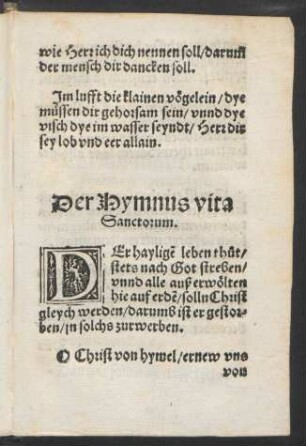 wie Herr ich dich nennen soll/darum̃
der mensch dir dancken soll.
Im lufft die klainen vögelein/dye
müssen dir gehorsam sein/vnnd dye
visch dye im wasser seyndt/Herr dir
sey lob vnd eer allain.
Der Hymnus vita
Sanctorum.
DEr haylige̅ leben thůt/
stets nach Got streßen/
vnnd alle auß erwölten
hie auf erde̅/solln Christ
gleych werden/darumb ist er gestor-
ben/jn solchs zurwerben.
O Christ von hymel/ernew vns
von